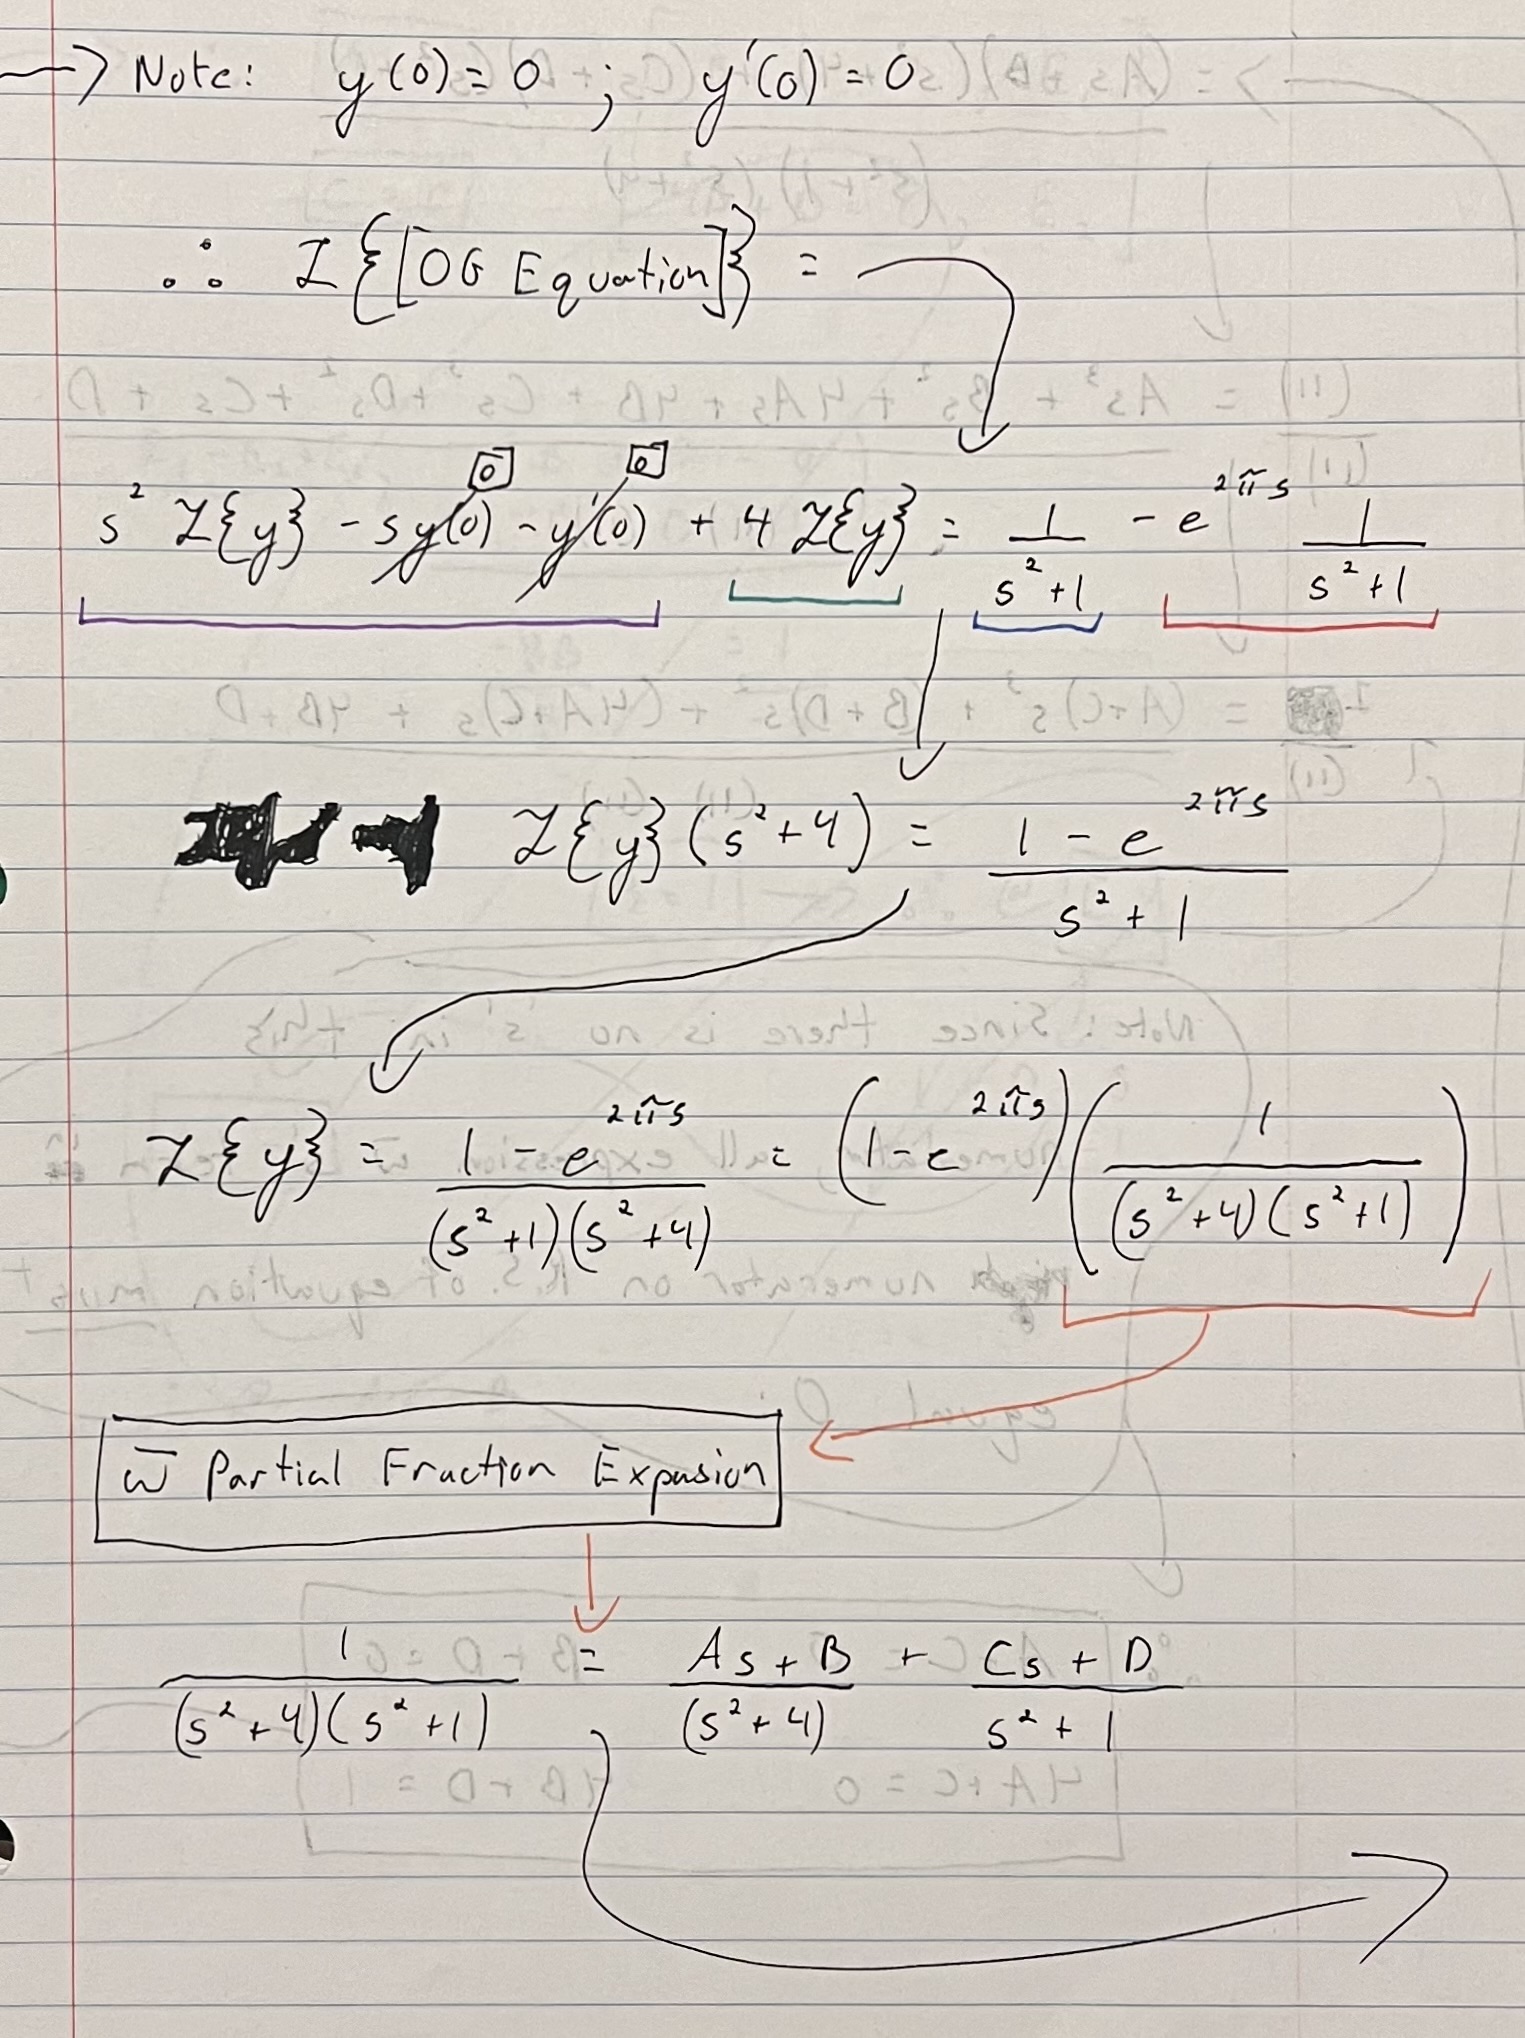 → Note: y(0) = 0 ; y'(0) = 0
∴ ℒ{[OG Equation]} =
0 0
s² ℒ{y} - sy(0) - y'(0) + 4 ℒ{y} = 1/(s²+1) - e^(2πs) 1/(s²+1)
ℒ{y}(s²+4) = (1 - e^(2πs))/(s²+1)
ℒ{y} = (1 - e^(2πs))/((s²+1)(s²+4)) = (1 - e^(2πs))(1/((s²+4)(s²+1)))
w̅ Partial Fraction Expasion
1/((s²+4)(s²+1)) = (As+B)/(s²+4) + (Cs+D)/(s²+1)